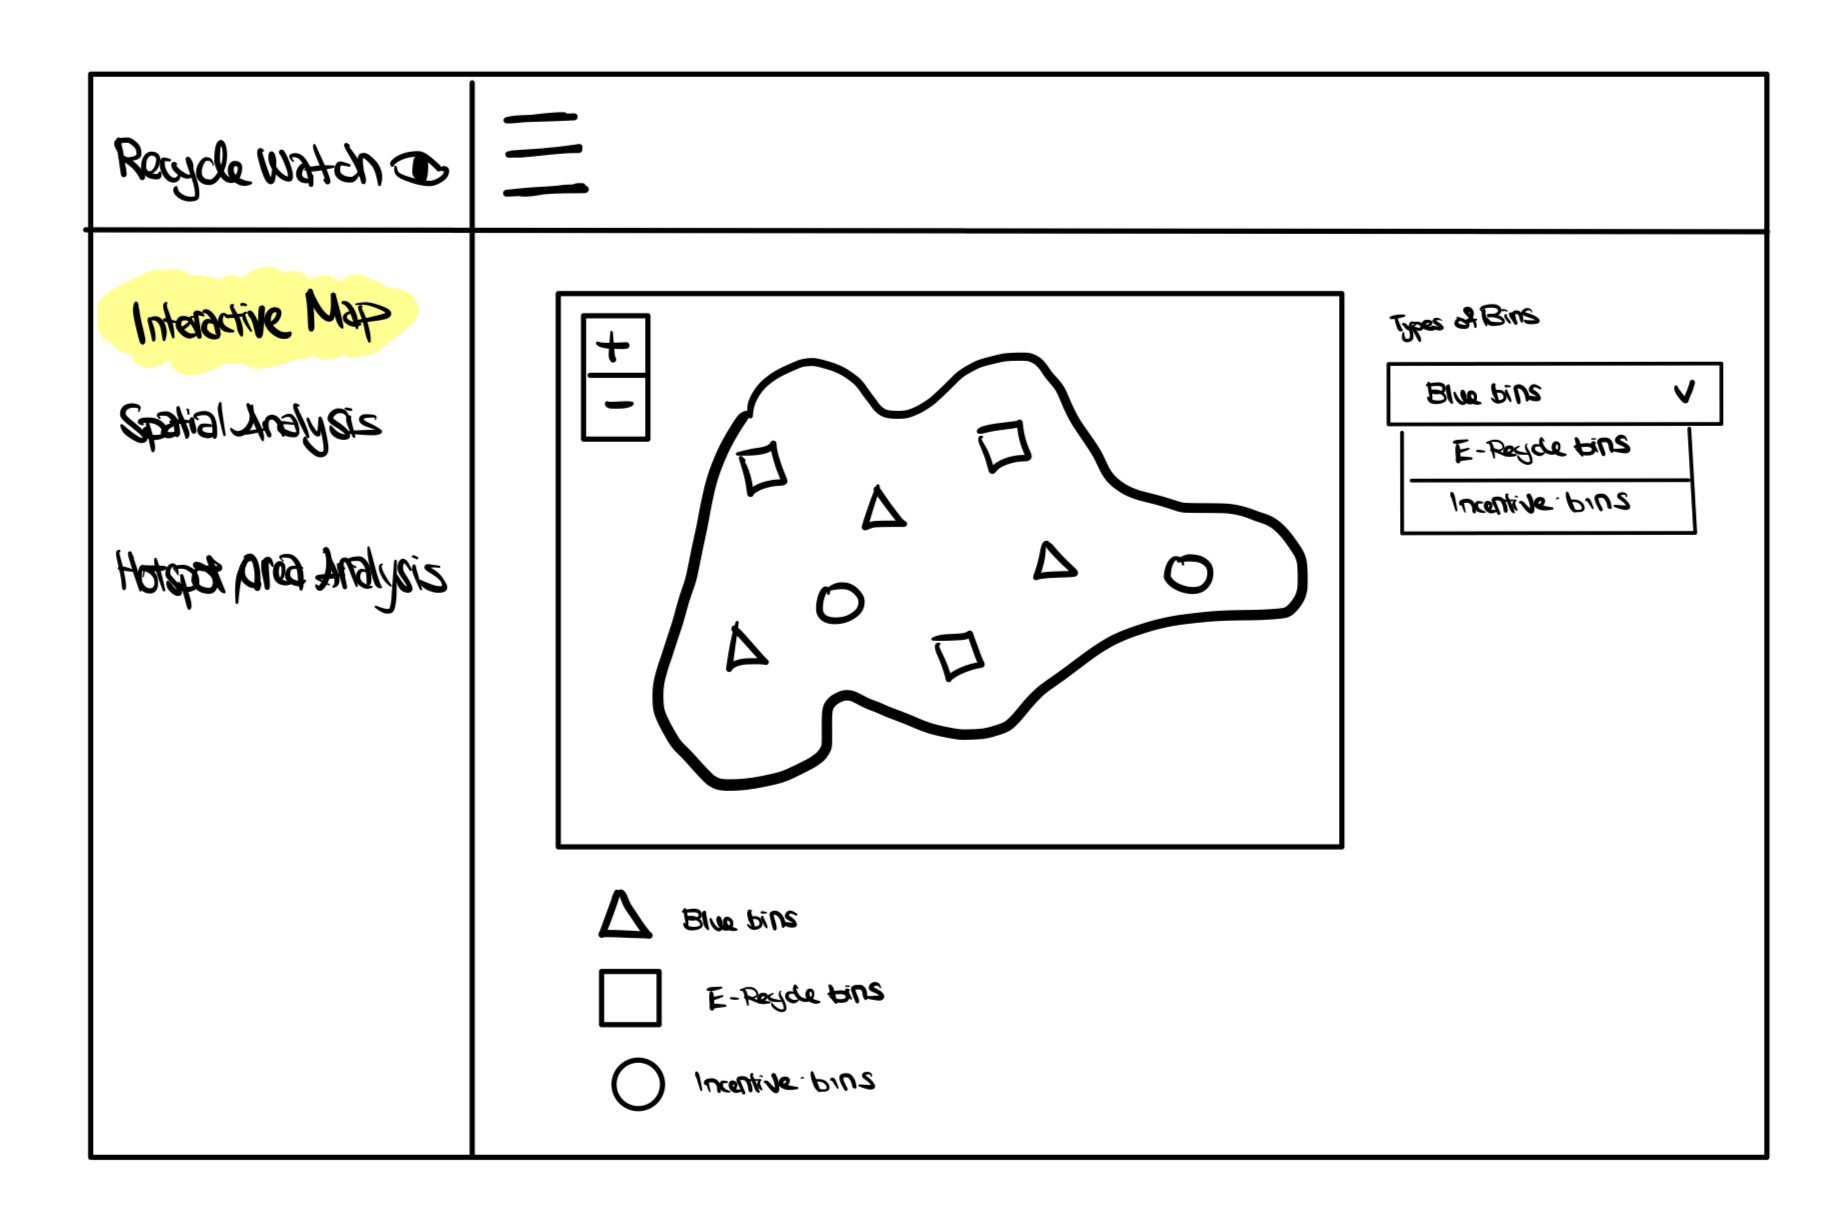 Recycle Watch
Interactive Map
Spatial Analysis
Hotspot Area Analysis
+
-
Types of Bins
Blue bins
E-Recycle bins
Incentive bins
Blue bins
E-Recycle bins
Incentive bins